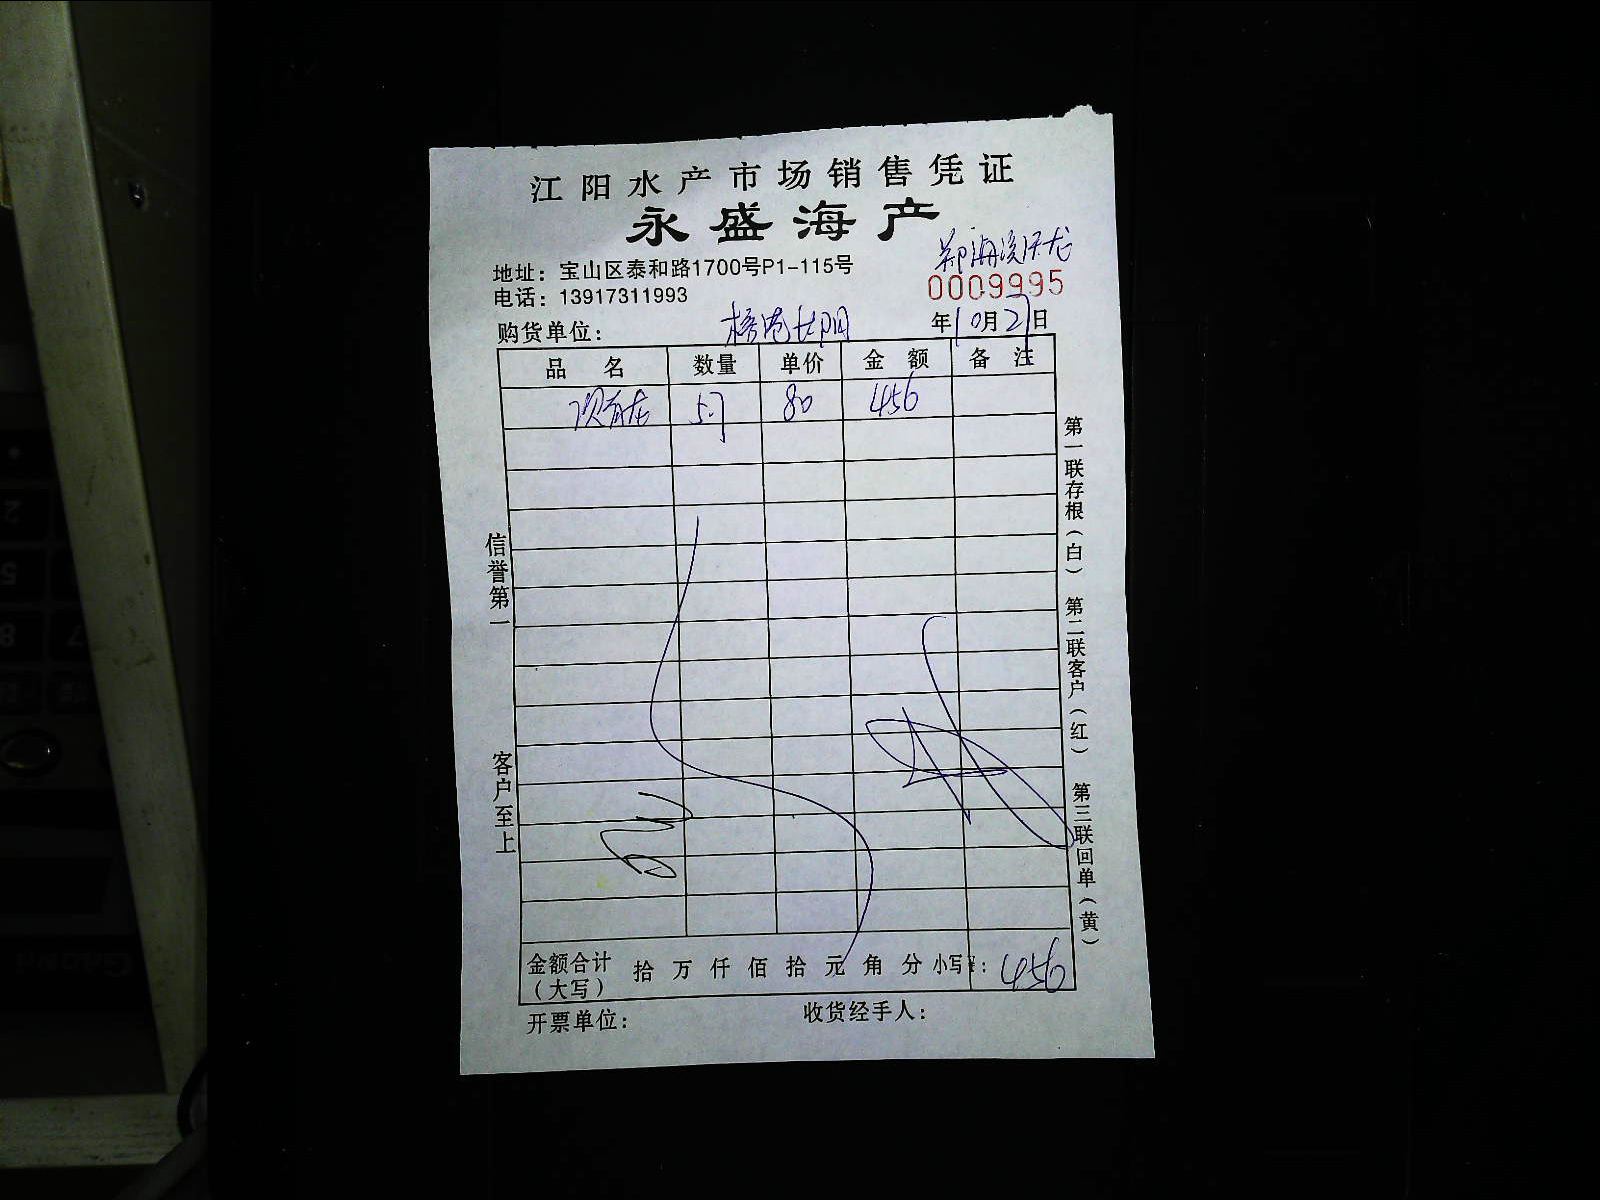 江阳水产市场销售凭证
永盛海产
地址：宝山区泰和路1700号P1-115号
电话：13917311993
0009995
购货单位：
年10月27日
品 名 数量 单价 金 额 备 注
5.7 80 456
信誉第一
客户至上
第一联存根（白） 第二联客户（红） 第三联回单（黄）
金额合计（大写） 拾 万 仟 佰 拾 元 角 分 小写¥：456
开票单位： 收货经手人：